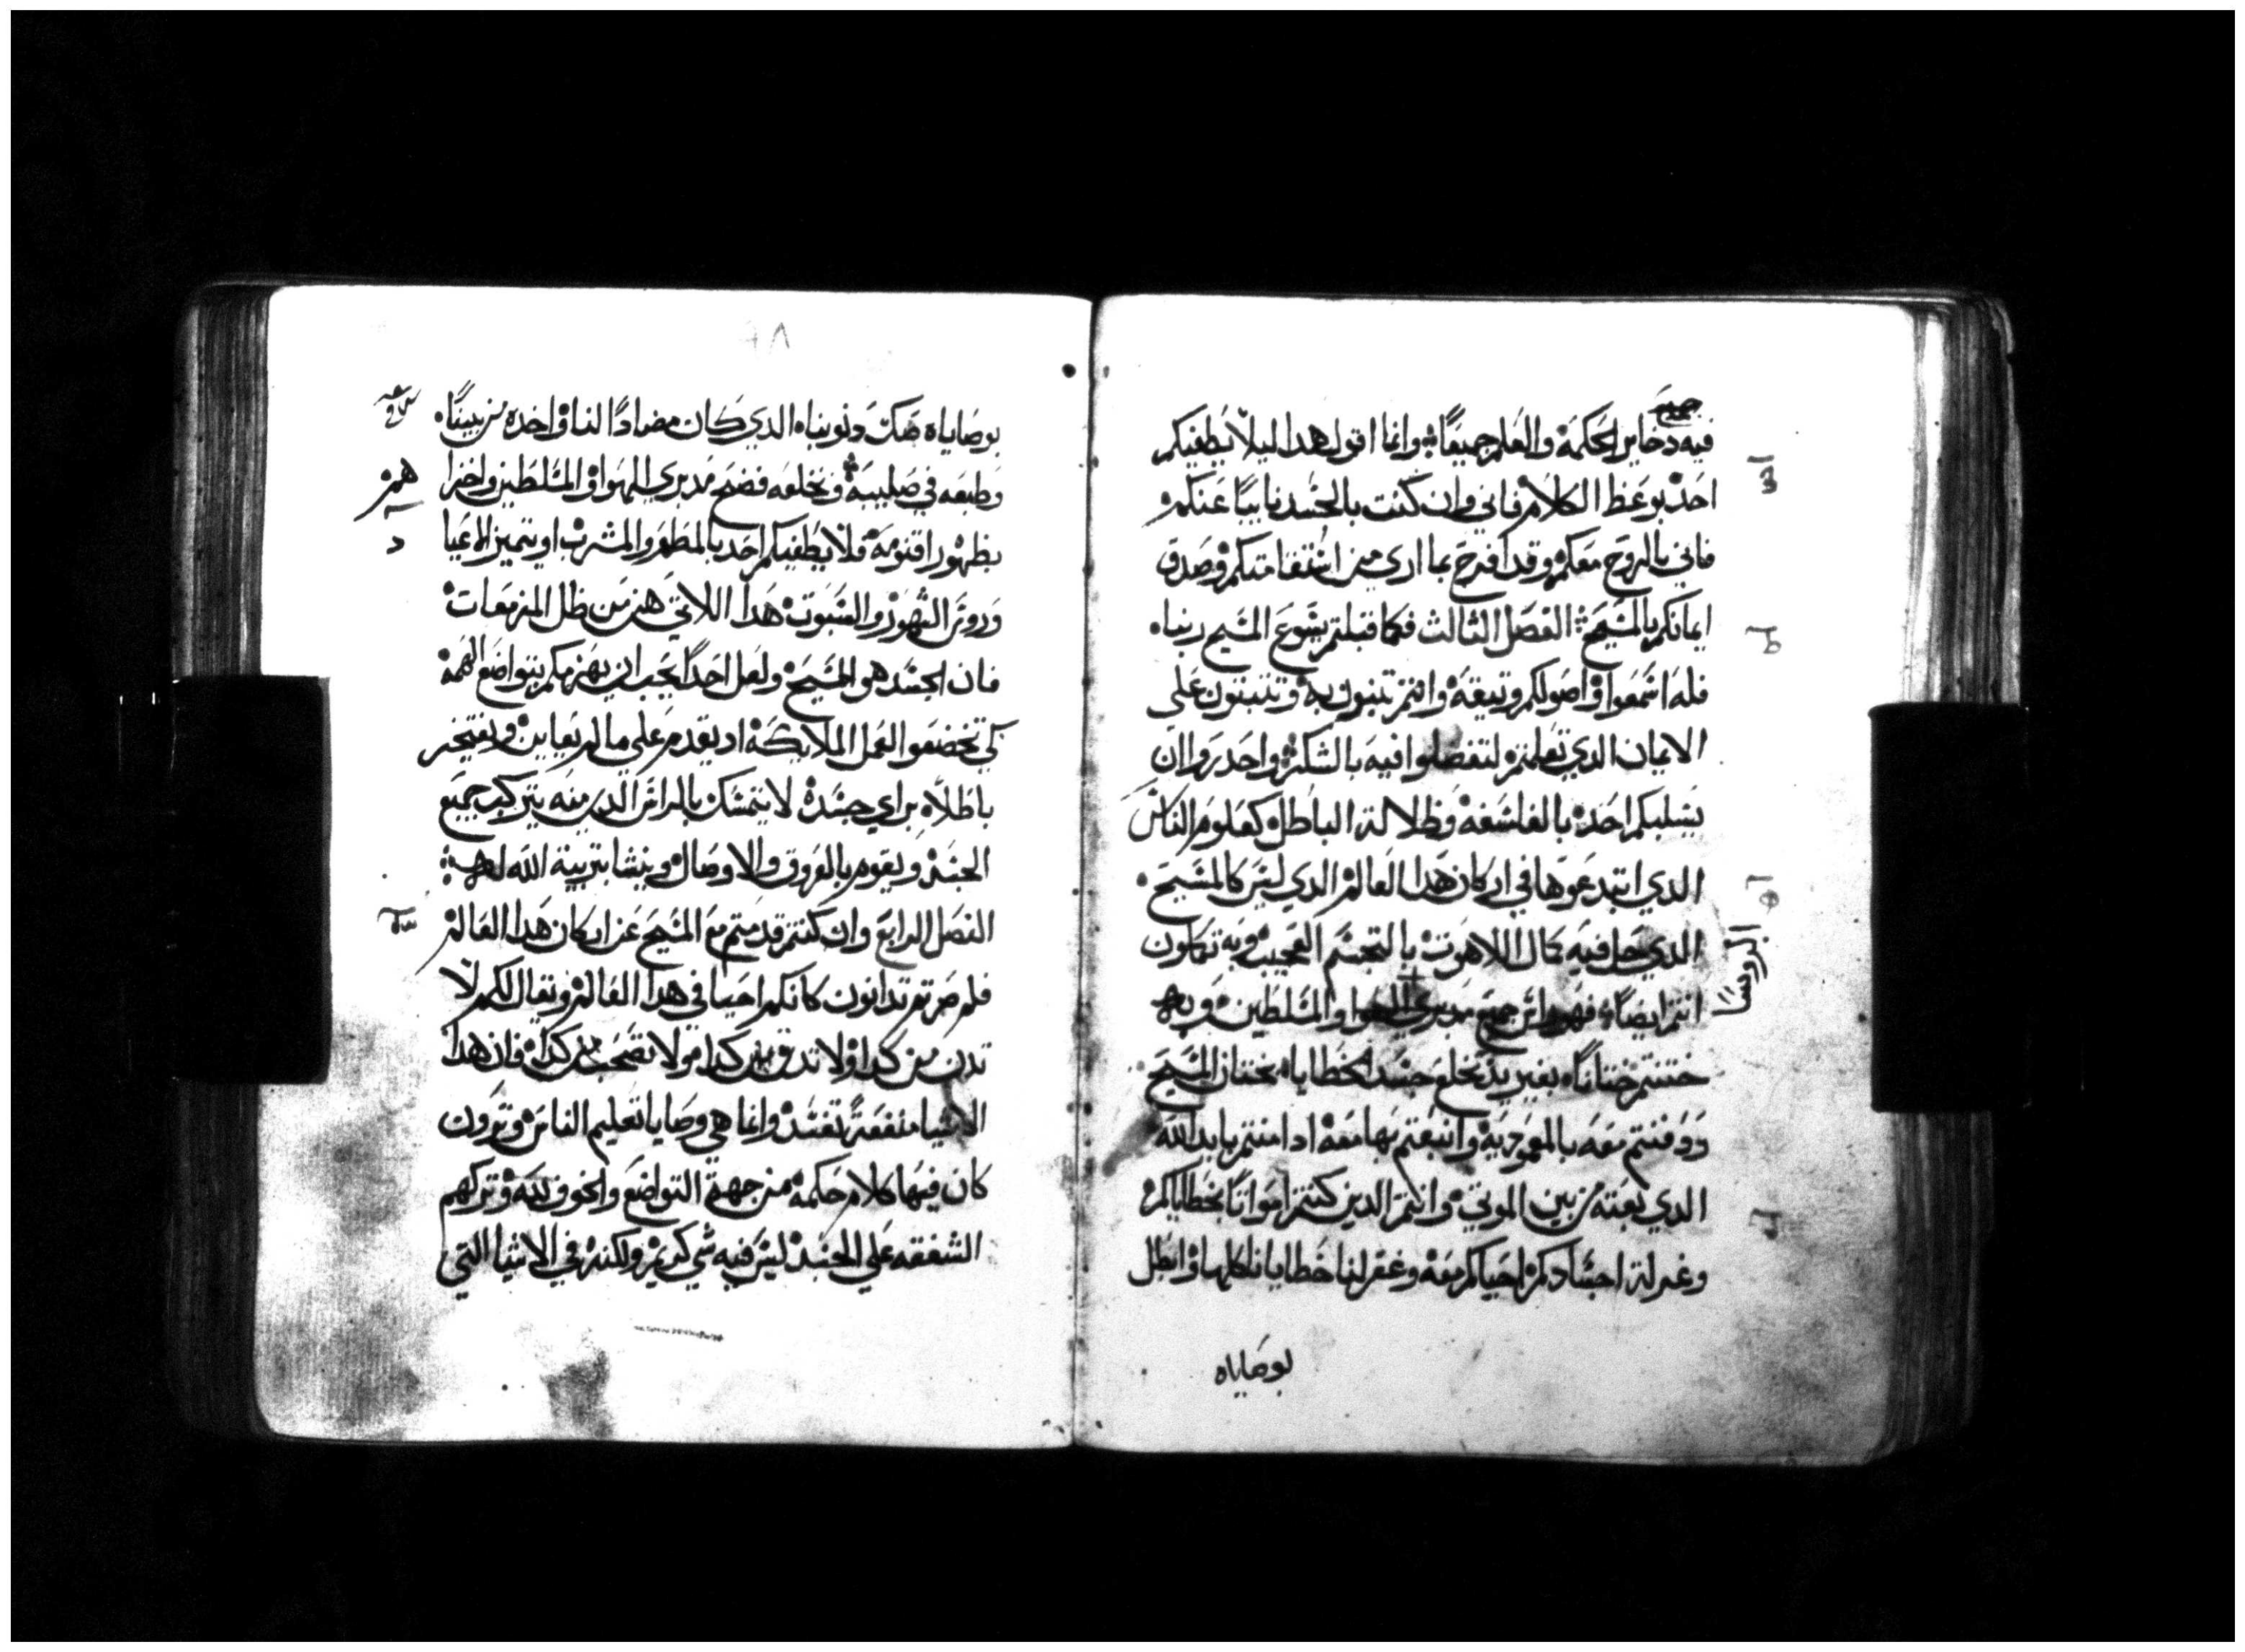 جميع
فيه دخاير الحكمة والعلم جميعًا وانما اقول هدا ليلا يطغيكم
احد بوعظ الكلام فاني وان كنت بالجسد نايبًا عنكم
فاني بالروح معكم وقد افرح بما اري من استقامتكم وصدق
ايمانكم بالمسيح الفصل الثالث فكما قبلتم يشوع المسيح ربنا
فله اسمعوا واصولكم وتيقة وانتم تبنون به وتتبتون علي
الايمان الدي تعلمتم لتفضلوا فيه بالشكر واحدروا ان
يسلبكم احد بالفلسفة وظلالة الباطل كعلوم الناس
الدي ابتدعوها في اركان هدا العالم الدي ليس كالمسيح
الدي حل فيه كمال اللاهوت بالتجسم العجيب وبه تكملون
انتم ايضًا فهو راس جميع مدبري الهوا والمسلطين وبه
الروسا
ختنتم ختانًا بغير يد بخلع جسد الخطايا بختان المسيح
ودفنتم معه بالمعمودية وانبعتم بها معه اد امنتم بايد الله
الدي بعته من بين الموتي وانتم الدين كنتم امواتًا بخطاياكم
وغرلة اجسادكم احياكم معه وغفر لنا خطايانا كلها وابطل
بوصاياه
٦٨
بوصاياه صك دنوبنا الدي كان مضادًا لنا واخده من بيننا
وطبعه في صليبه وبخلعه فضح مدبري الهوا والمسلطين واخزا
هم
بظهور اقنومه فلا يطغيكم احد بالمطعم والمشرب او بتمييز الاعيا
د
وروس الشهور والسبوت هدا اللاتي هن من ظل المزمعات
فان الجسد هو المسيح ولعل احدًا يحب ان يهزمكم بتواضع الهمة
كي تخضعوا لعمل الملايكة اد يقدم علي ما لم يعاين ويفتخر
باطلًا براي جسده لا يتمسك بالراس الدي منه يتركب جميع
الجسد ويقوم بالعروق والاوصال وينشا بتربية الله له
الفصل الرابع وان كنتم قد متم مع المسيح عن اركان هدا العالم
فلم صرتم تدانون كانكم احيا في هدا العالم ويقال لكم لا
تدن من كدا ولا تدق من كدا ولا تصحب كدا فان هدا
الاشيا منفعة تفسد وانما هي وصايا تعليم الناس وترون
كان فيها كلام حكمة من جهة التواضع والخوف لله وتركهم
الشفقه علي الجسد ليس فيه شي كريم ولكنه في الاشيا التي